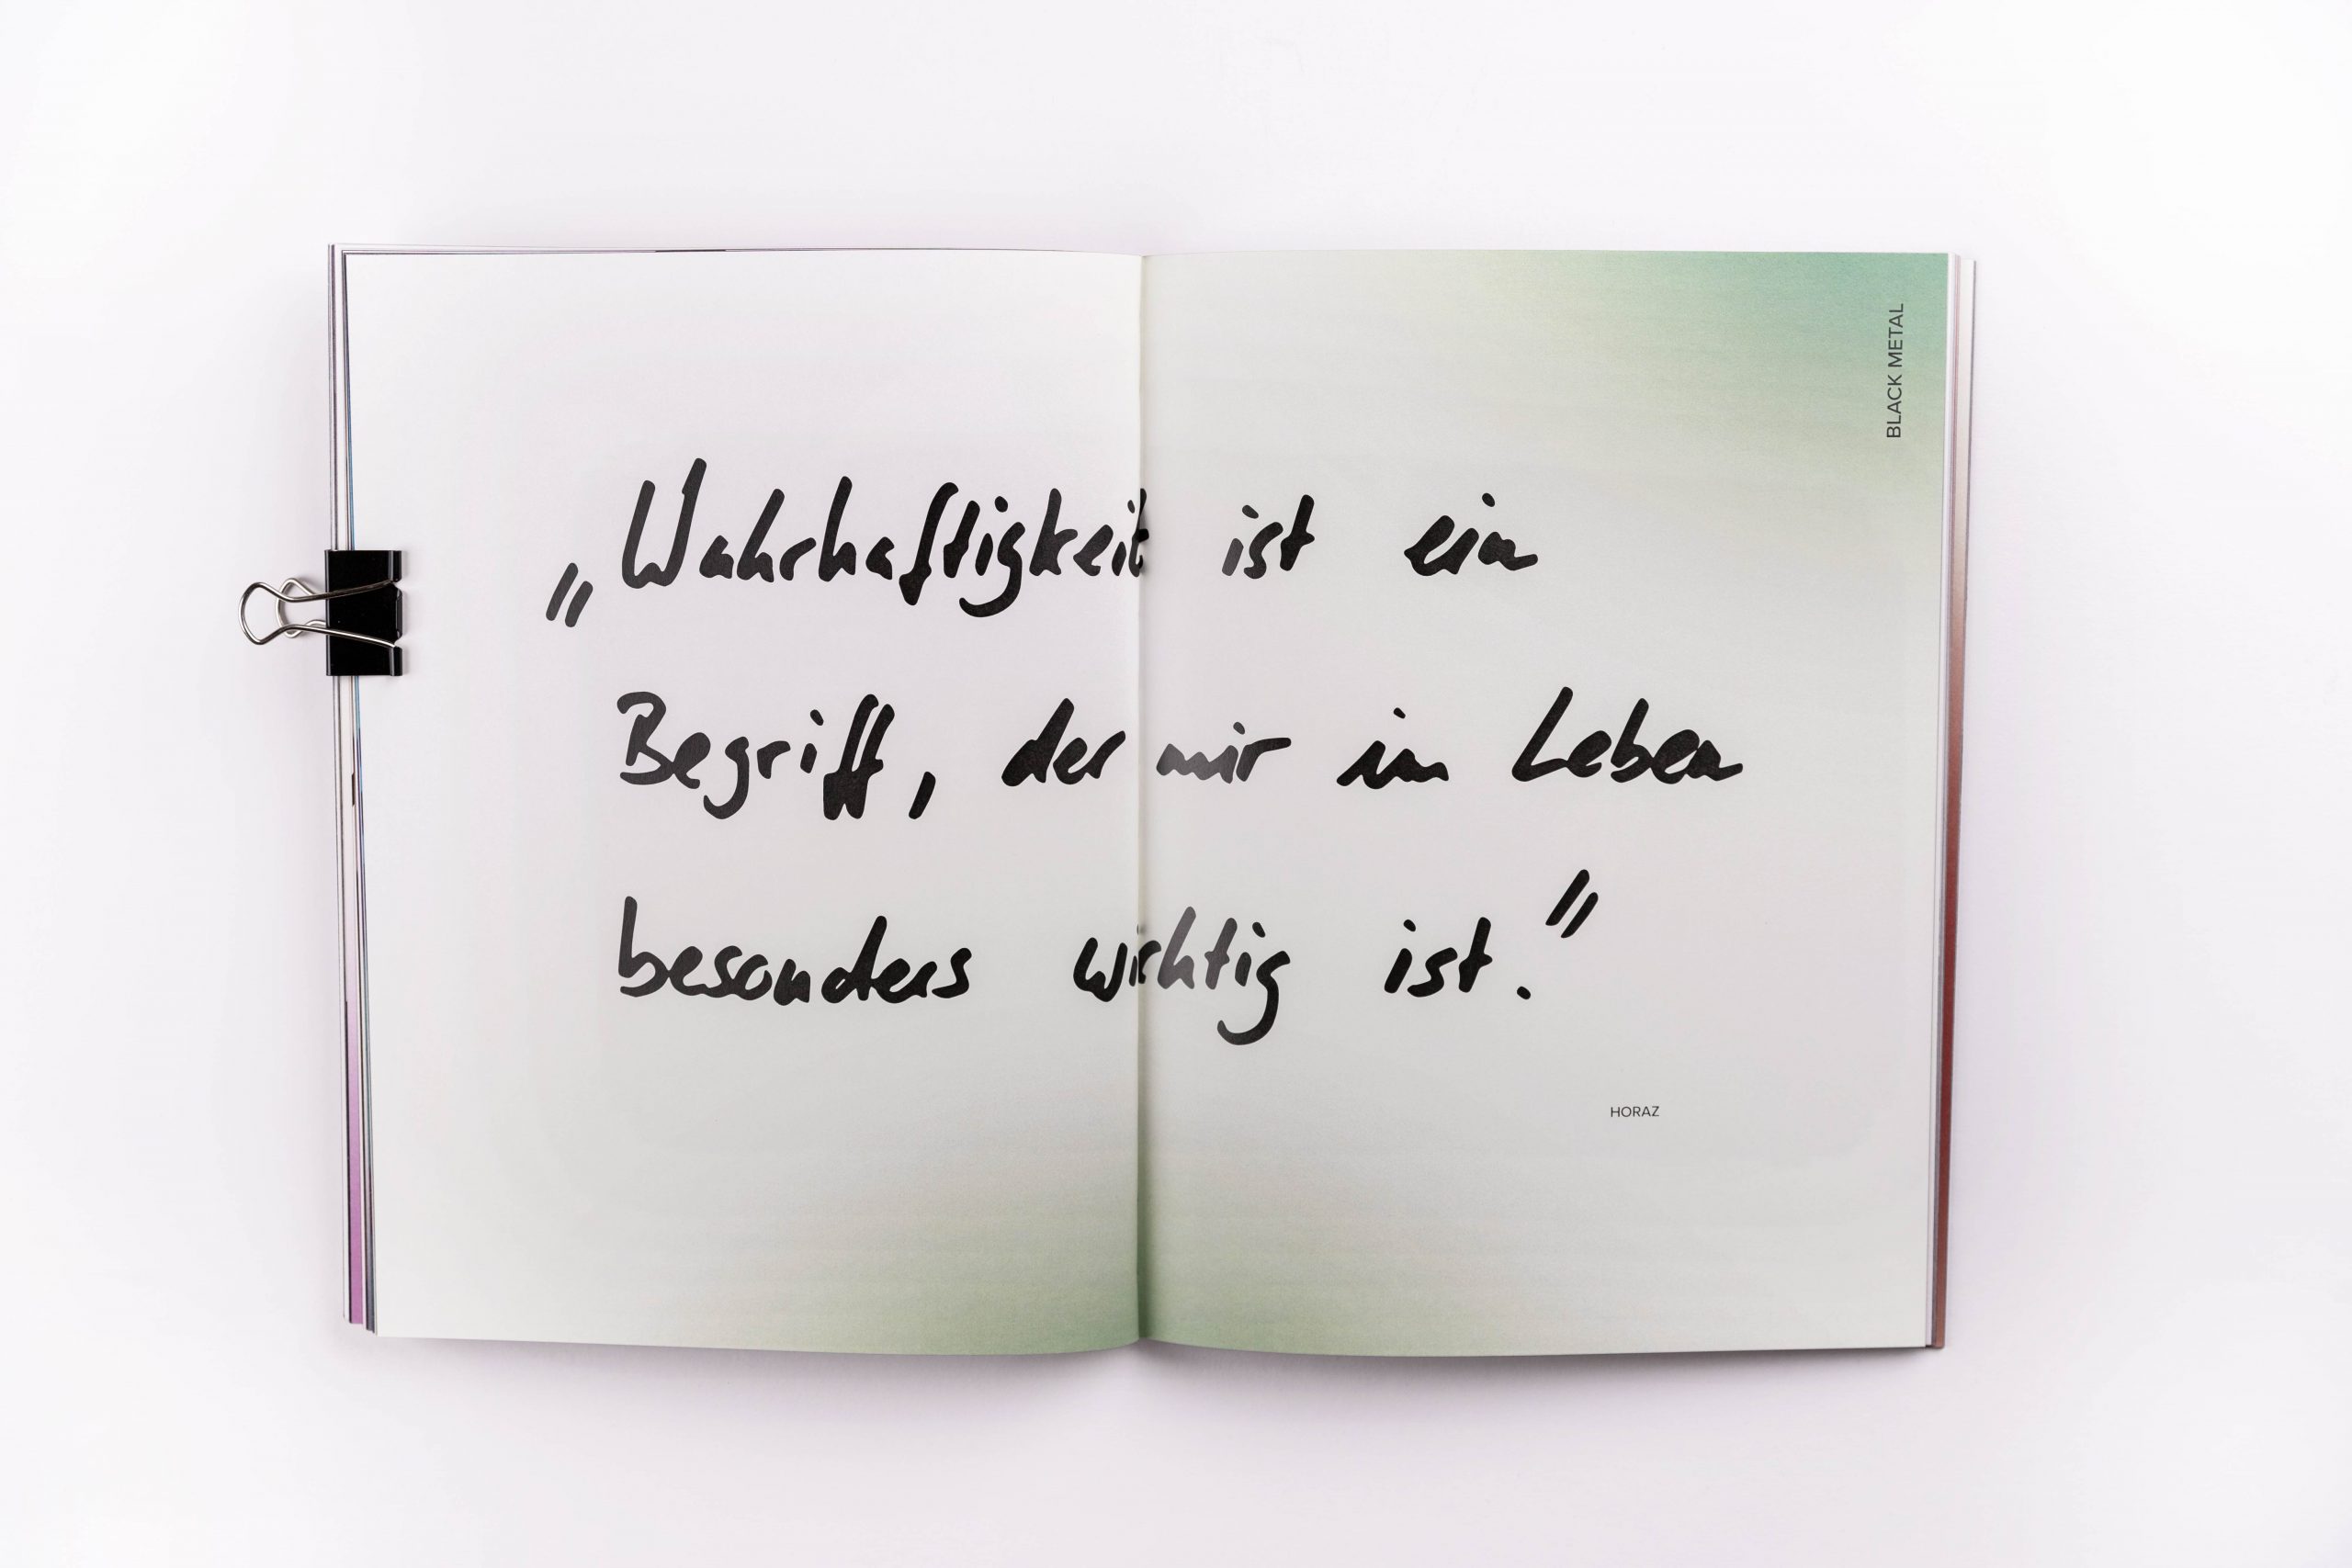 „Wahrhaftigkeit ist ein
Begriff, der mir im Leben
besonders wichtig ist."
HORAZ
BLACK METAL